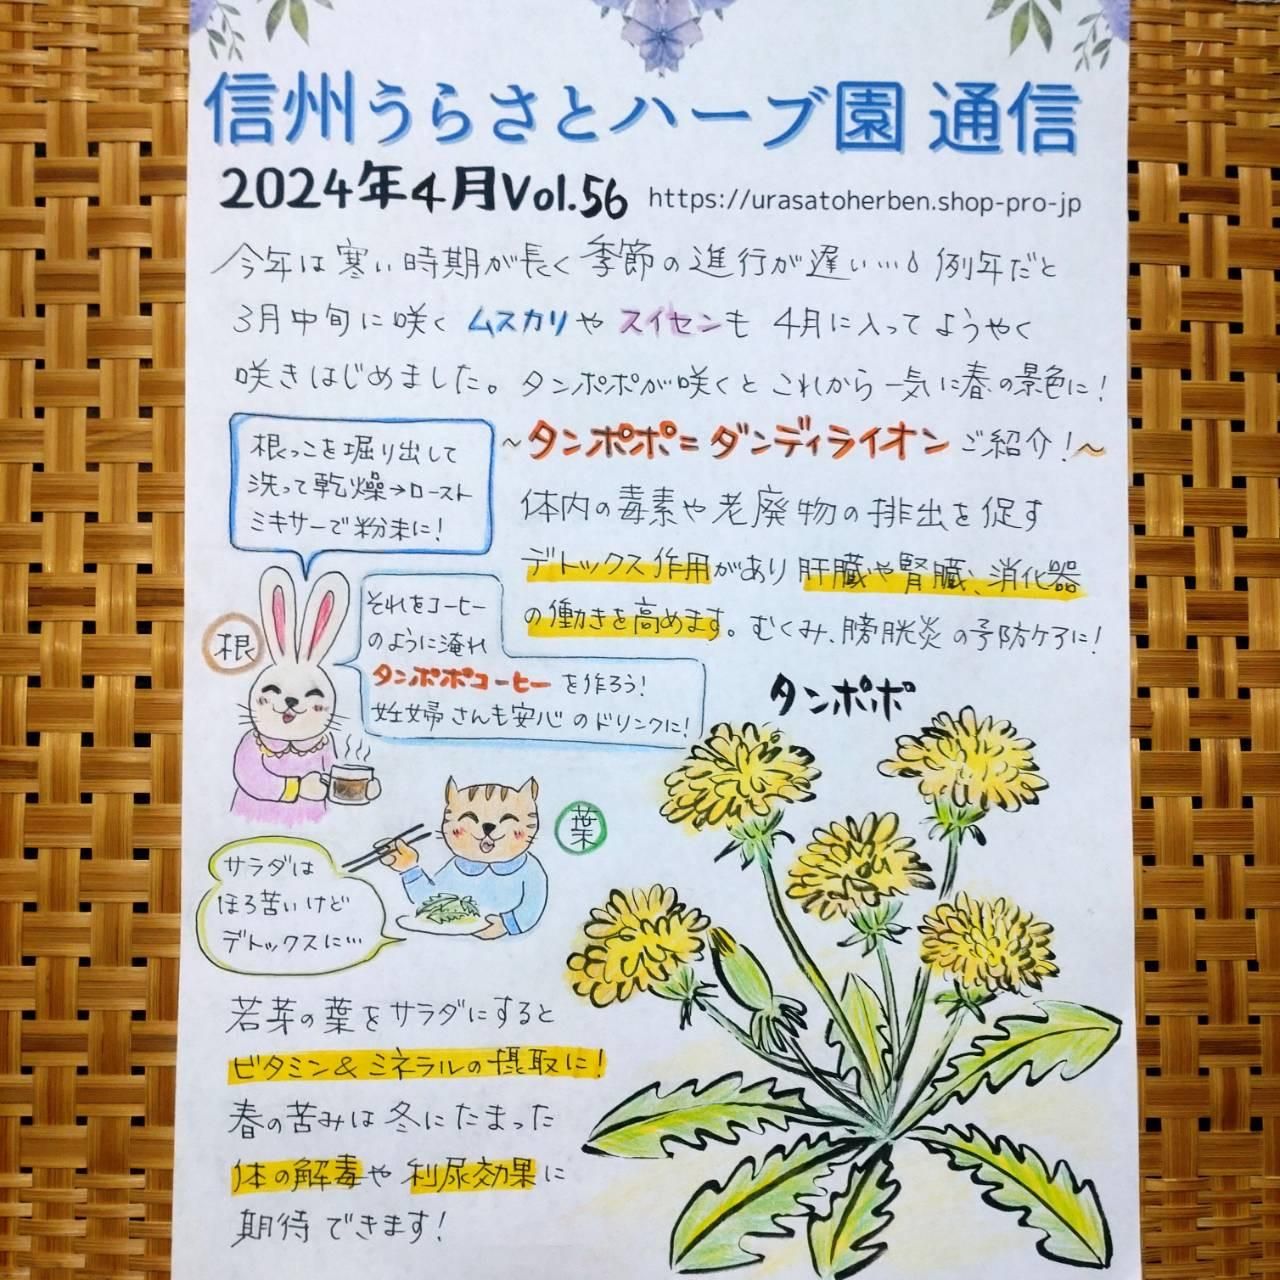 信州うらさとハーブ園 通信
2024年4月Vol.56 https://urasatoherben.shop-pro-jp
今年は寒い時期が長く季節の進行が遅い…。例年だと
3月中旬に咲く ムスカリや スイセンも 4月に入ってようやく
咲きはじめました。タンポポが咲くと これから一気に春の景色に!
~タンポポ=ダンディライオン ご紹介!~
根っこを堀り出して
洗って乾燥→ロースト
ミキサーで粉末に!
体内の毒素や老廃物の排出を促す
デトックス作用があり 肝臓や腎臓、消化器
の働きを高めます。むくみ、膀胱炎の予防ケアに!
根
それをコーヒー
のように淹れ
タンポポコーヒーを作ろう!
妊婦さんも安心のドリンクに!
タンポポ
葉
サラダは
ほろ苦いけど
デトックスに…
若芽の葉をサラダにすると
ビタミン&ミネラルの摂取に!
春の苦みは冬にたまった
体の解毒や利尿効果に
期待できます!